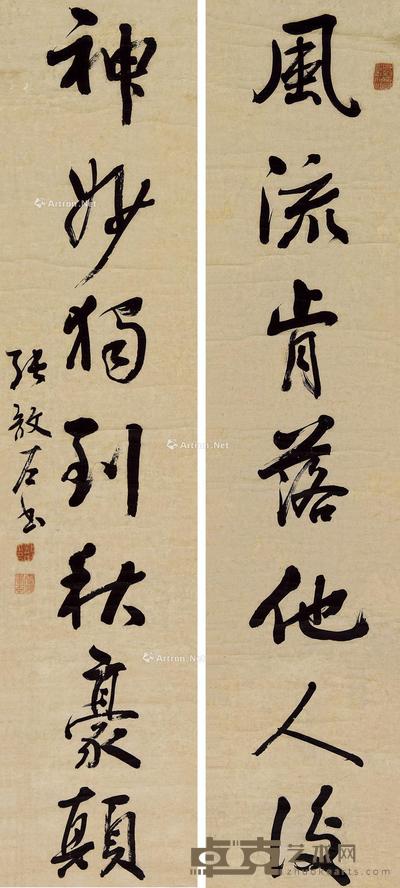 風流肯落他人後
神妙獨到秋豪顛
張啟后書
Artron.Net
Artron.Net
Artron.Net
卓克艺术网